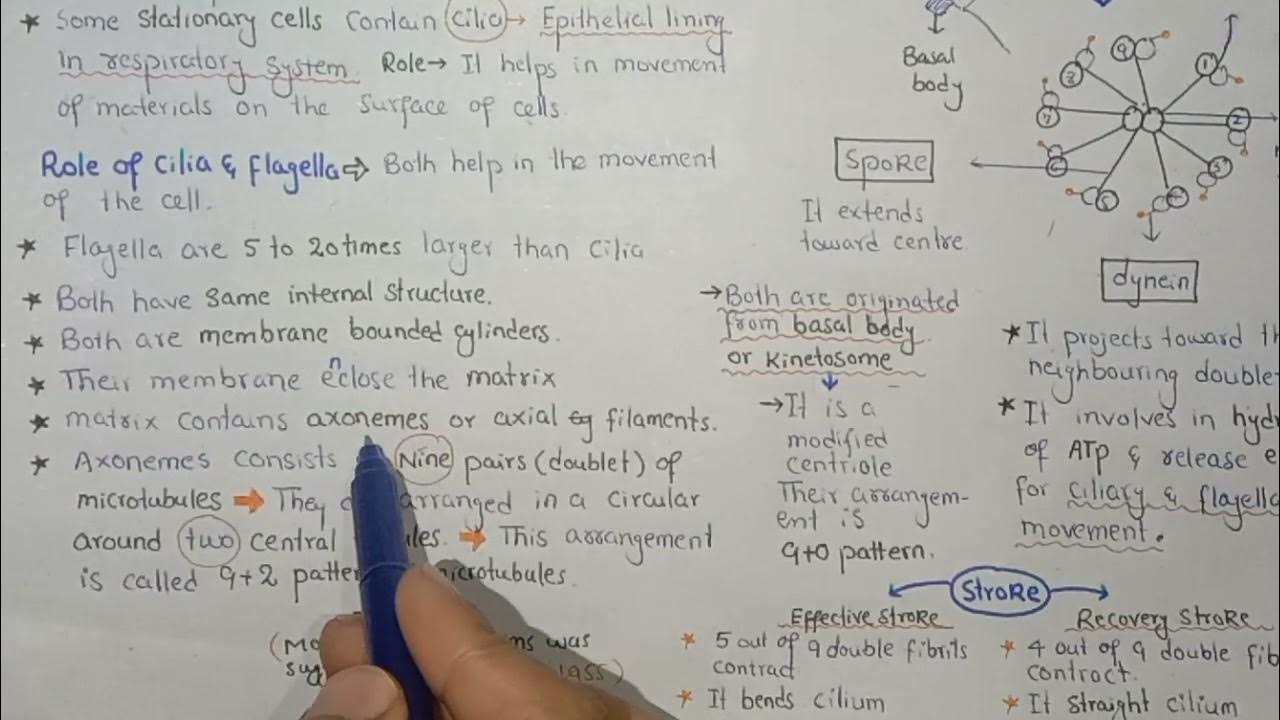 * Some stationary cells contain cilia → Epithelial lining
in respiratory system. Role → It helps in movement
of materials on the surface of cells.
Role of cilia & flagella ⇒ Both help in the movement
of the cell.
* Flagella are 5 to 20 times larger than cilia
* Both have same internal structure.
* Both are membrane bounded cylinders.
* Their membrane enclose the matrix
* matrix contains axonemes or axial filaments.
* Axonemes consists Nine pairs (doublet) of
microtubules → They arranged in a circular
around two central. → This arrangement
is called 9+2 microtubules.
was
1955)
Basal
body
9
1
2
3
4
5
6
7
8
SpoRe
It extends
toward centre
dynein
→ Both are originated
from basal body
or Kinetosome
→ It is a
modified
centriole
Their arrangem-
ent is
9+0 pattern.
* It projects toward
neighbouring double
* It involves in
of ATP & release
for ciliary & flagella
movement.
StroRe
Effective StroRe
* 5 out of 9 double fibrils
contract
* It bends cilium
Recovery StroRe
* 4 out of 9 double
contract.
* It straight cilium